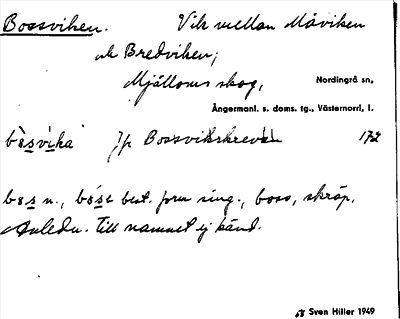 Bossviken. Vik mellan Måviken
och Bredviken;
Mjälloms skog,
Nordingrå sn,
Ångermanl. s. doms. tg., Västernorrl. l.
Jfr Bossvikskrevan 172
bos n., best. form sing., boss, skräp,
Anledn. till namnet ej känd.
Sven Hiller 1949